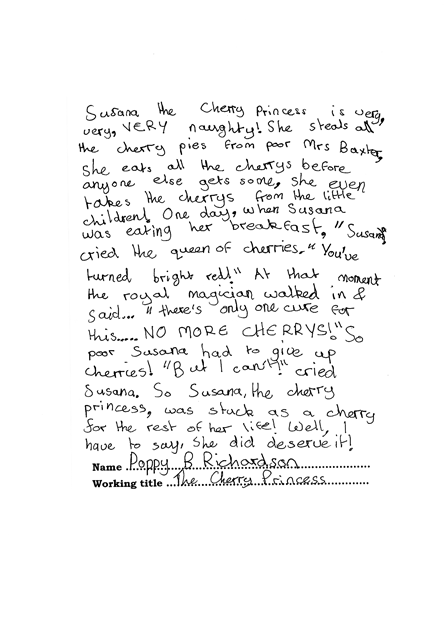 Susana the Cherry Princess is very,
very, VERY naughty! She steals all
the cherry pies from poor Mrs Baxter,
she eats all the cherrys before
anyone else gets some, she even
takes the cherrys from the little
children! One day, when Susana
was eating her breakfast, "Susana"
cried the queen of cherries. "You've
turned bright red!" At that moment
the royal magician walked in &
said... "there's only one cure for
this..... NO MORE CHERRYS!" So
poor Susana had to give up
cherries! "But I can't!" cried
Susana. So Susana, the cherry
princess, was stuck as a cherry
for the rest of her life! Well, I
have to say, she did deserve it!
Name Poppy B Richardson
Working title The Cherry Princess